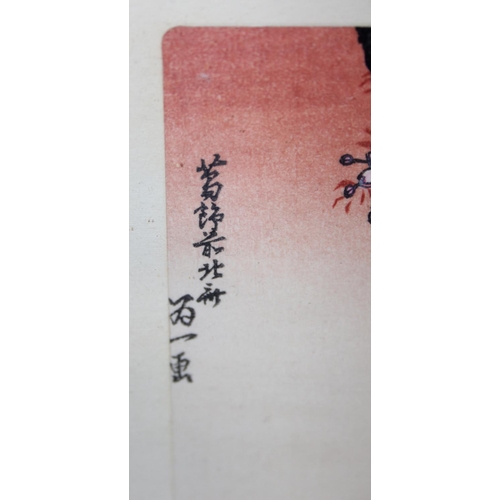 葛飾前北斎
為一画